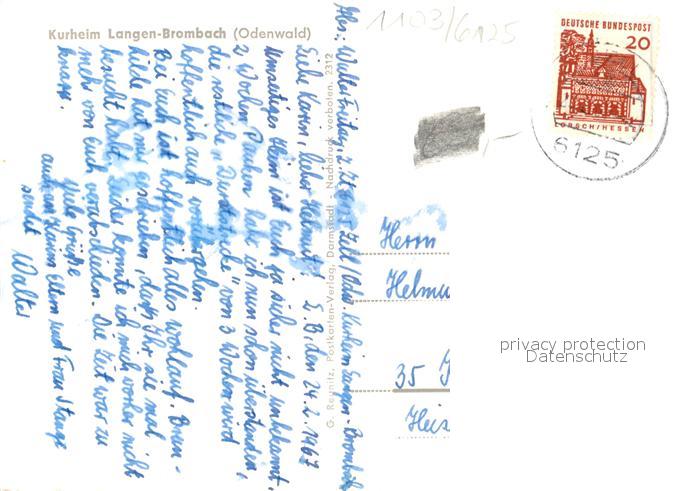 Kurheim Langen-Brombach (Odenwald)
1103/6125
DEUTSCHE BUNDESPOST
20
LORSCH/HESSEN
6125
Abs.: Walter Freitag, z. Zt. 6125 Zell/Odw. Kurheim Langen-Brombach
z. Zt., den 24.2.1967
Liebe Karin, lieber Helmut!
Umseitiges Heim ist Euch ja sicher nicht unbekannt.
2 Wochen habe ich nun schon überstanden,
die restliche von 3 Wochen wird
hoffentlich auch vorübergehen.
Bei Euch ist hoffentlich alles wohlauf. Brun-
hilde hat mir geschrieben, dass Ihr sie mal
besucht habt. Leider konnte ich mich vorher nicht
mehr von Euch verabschieden. Die Zeit war zu
knapp.
Viele Grüße
auch an Eltern und Frau Stange
sendet Walter
G. Reunitz, Postkarten-Verlag, Darmstadt - Nachdruck verboten. 2312
Herrn
Helmu
35
privacy protection
Datenschutz